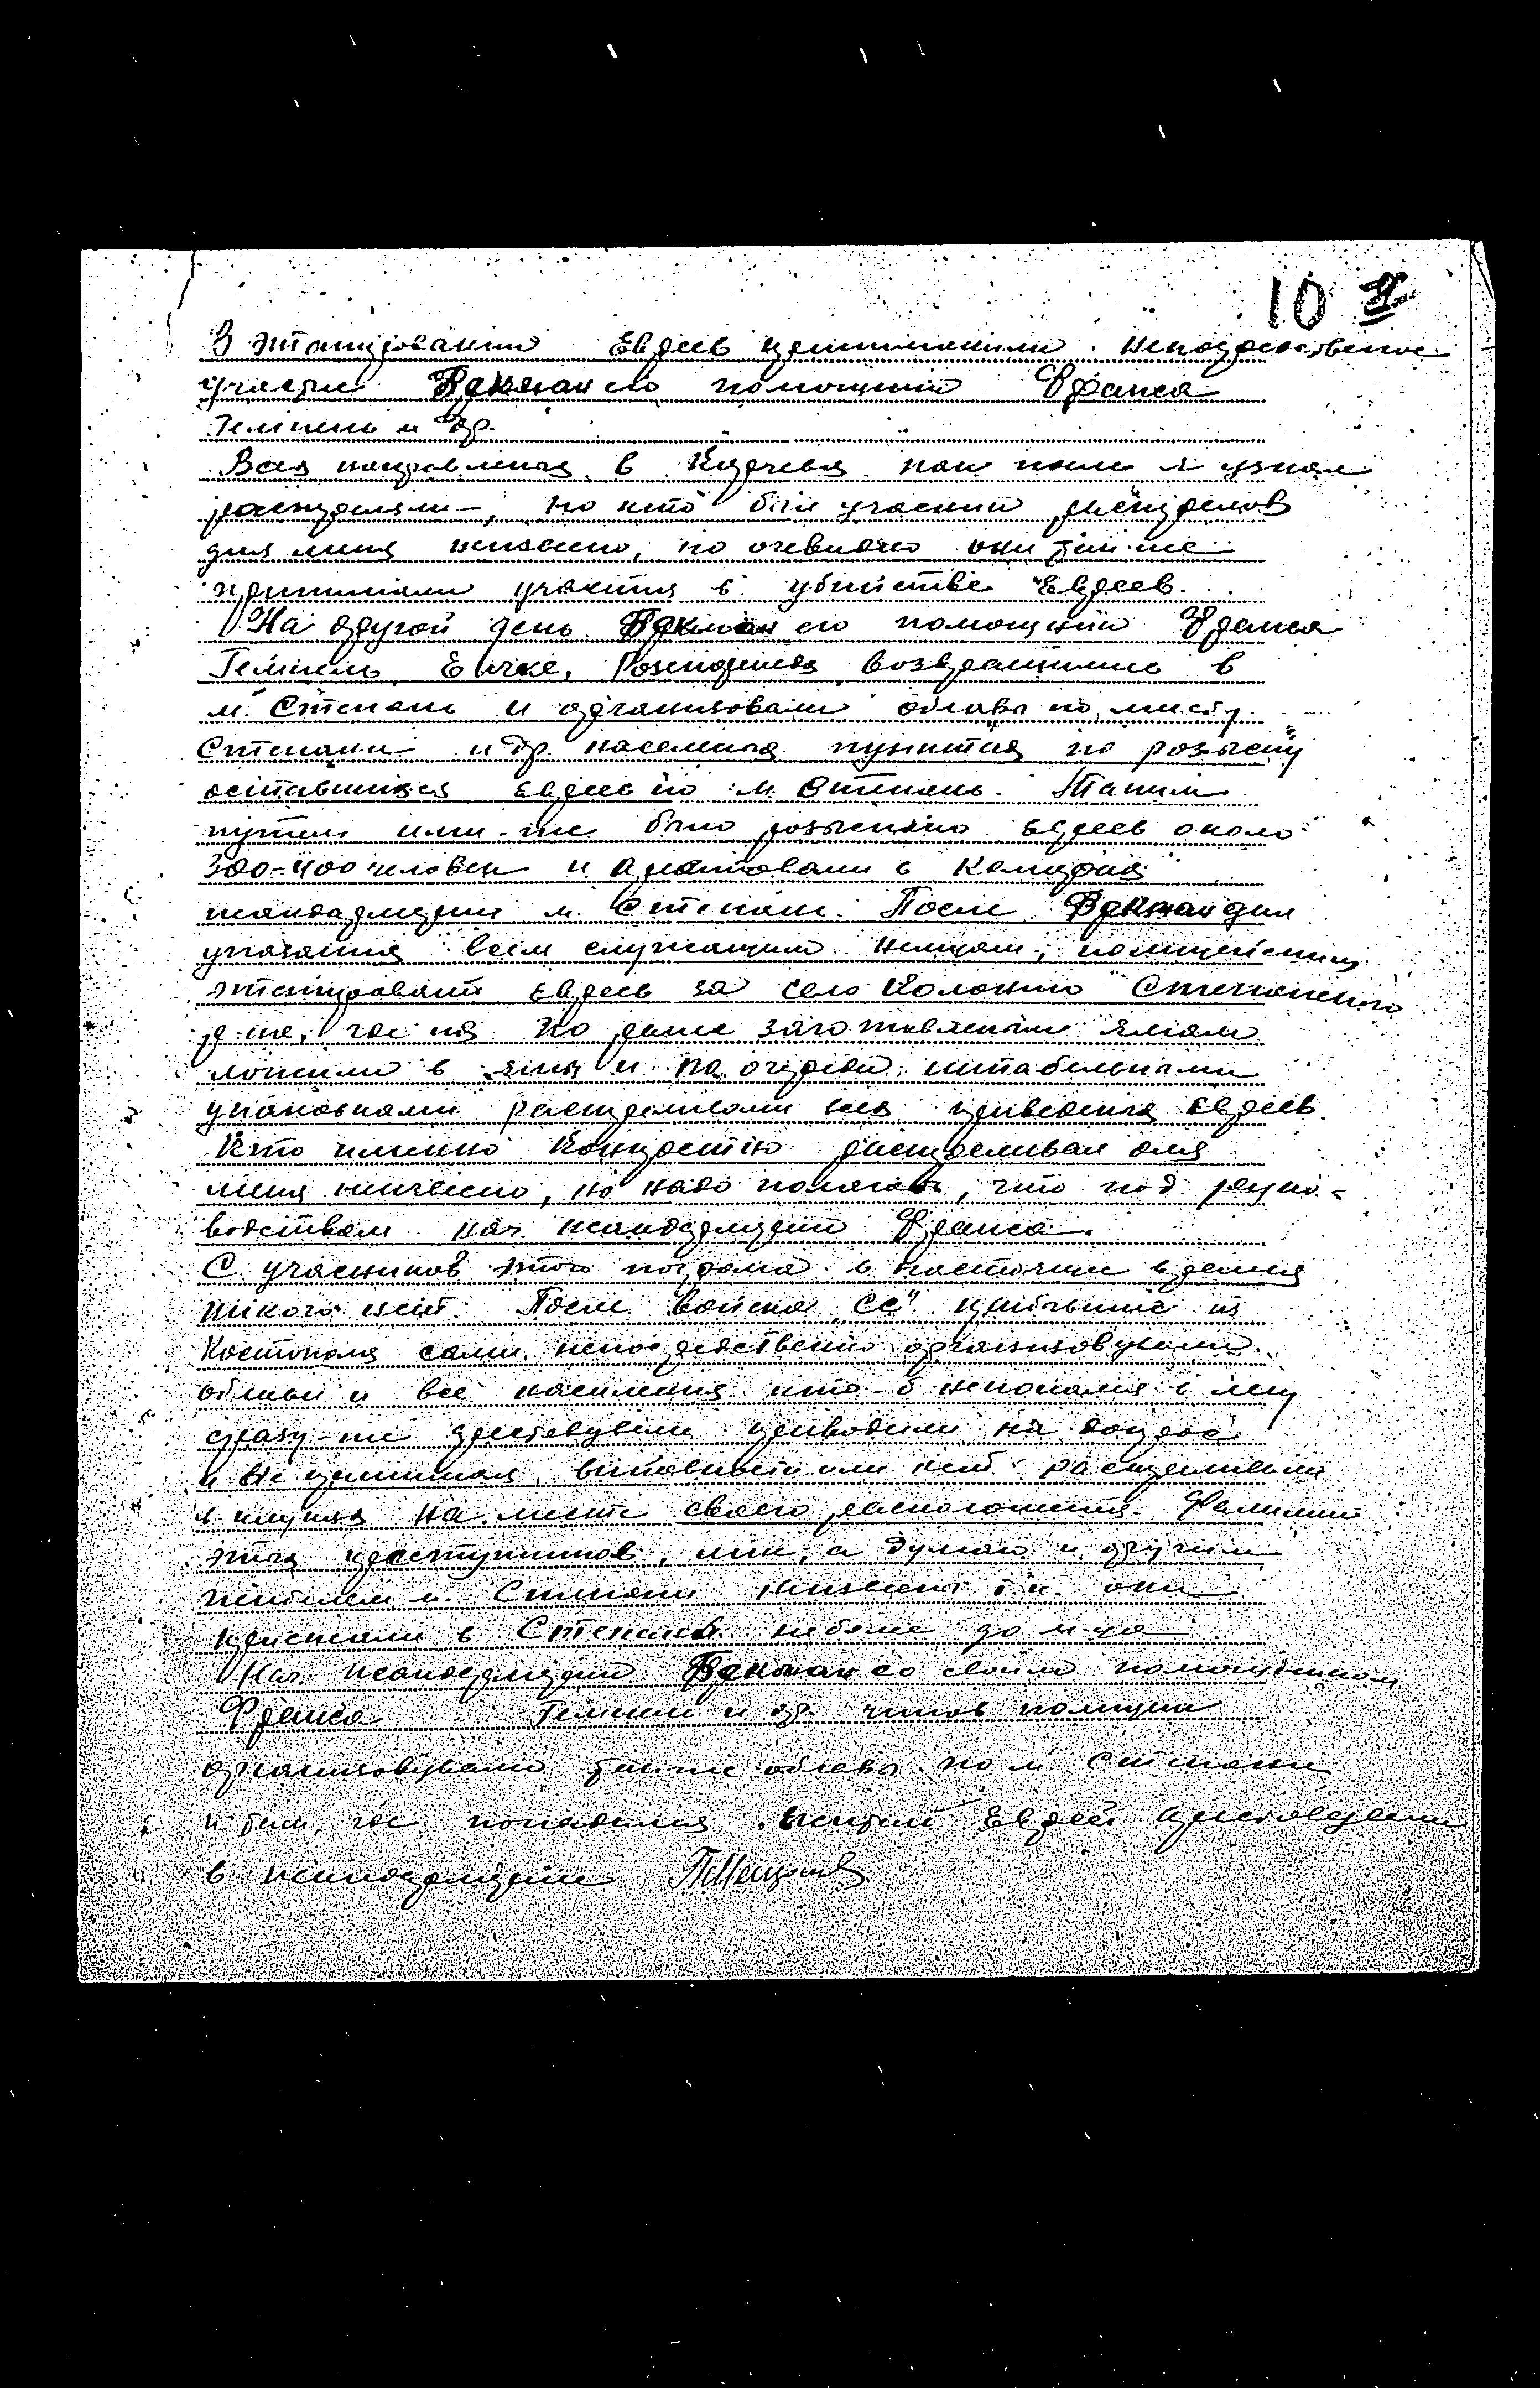 10
В этапировании Евреев принимали непосредственое
участие Векман его помощник Франса
Гемпень и др.
Всех направленых в Кидрева как после я узнал
расстреляли, но кто был участник расстрелов
для меня неизвесно, но очевидно они также
принимали участия в убийстве Евреев.
На другой день Векман его помощник Франса
Гемпель, Еичке, возвратились в
м. Степань и организовали облавы по месту
Степани и др. населеных пунктах по розыску
оставшихся Евреев по м. Степань. Таким
путем ими-же было розыскано Евреев около
300-400 человек и арестовали в камерах
жандармерии м. Степань. После Векман дал
указания всем служащим немцам, полицейским
этапировать Евреев за село Колонию Степанского
р-на, где их по раше заготовленым ямам
ложили в ямы и по очереди штабельнами
упаковками растреливали всех приведеных Евреев.
Кто именно конкрестно растреливал для
меня неизвесно, но надо полагать, что под руко-
водствам нач. жандармерии Франса.
С учасников этого погрома в настоящее время
никого нет. После войска "СС" прибывшие из
Костополя сами непосредственно организовували
облавы и все населения кто-б непопался в лесу
сразу-же арестовували приводили на допрос
и не принимая виновность или нет растреливали
в на месте своего расположения. Фамилии
этих преступников, мне, а думаю и другим
жителям м. Степани неизвесно т.к. они
приезжали в Степань неболе до м-ца
Нач. жандармерии Векман со своим помощником
Франса Гемпель и др. чинов полиции
организовували также облавы по м. Степани
и там, где попадался Еврей арестовували
в жандармерию